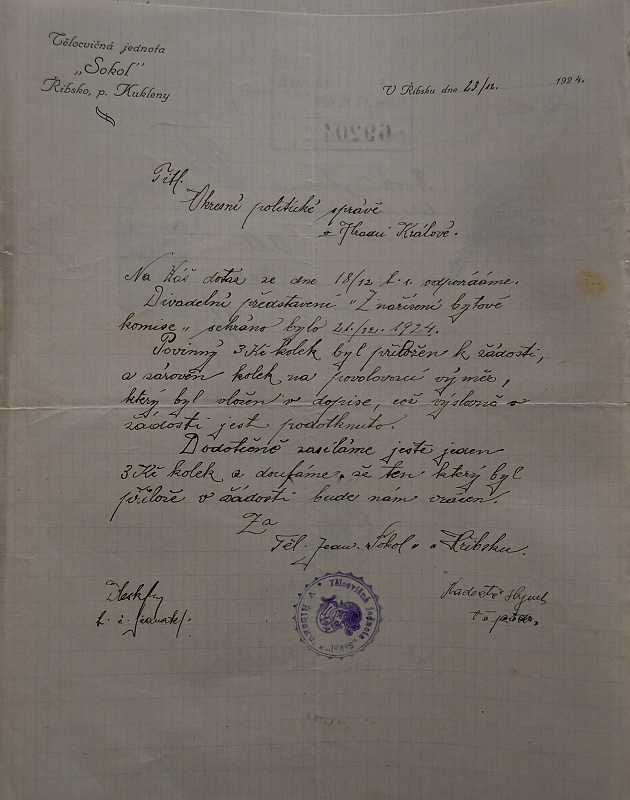 Tělocvičná jednota
„Sokol“
Řibsko, p. Kukleny
V Řibsku dne 23/12. 1924.
Titl.
Okresní politické správě
v Hradci Králové.
Na Váš dotaz ze dne 18/12 t.r. odpovídáme.
Divadelní představení „Z nařízení bytové
komise„ sehráno bylo 21./12. 1924.
Povinný 3 Kč kolek byl přiložen k žádosti,
a zároveň kolek na povolovací výměr,
který byl vložen v dopise, což výslovně v
žádosti jest podotknuto.
Dodatečně zasíláme ještě jeden
3 Kč kolek a doufáme, že ten který byl
přilože v žádosti bude nam vrácen.
Za
Těl. Jedn. Sokol v Řibsku.
t. č. jednatel.
Tělocvičná jednota „Sokol“ v Řibsku